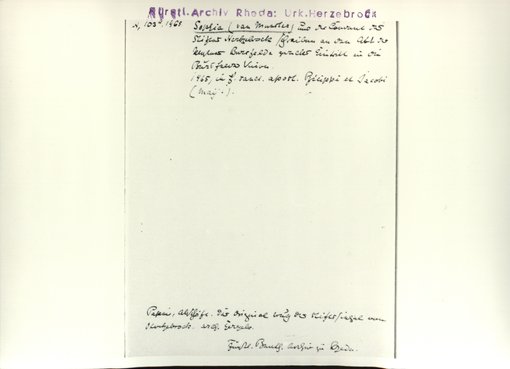 Fürstl. Archiv Rheda: Urk. Herzebrock
1465
Sophia (van Munster) und der Convent des
Stiftes Herzebrock schreiben an den Abt des
Klosters Bursfelde Eintritt in die
Bursfelder Union.
1465, in f. sanct. apost. Philippi et Jacobi
(Maij 1).
Papier, Abschrift. Das Original trug das Stiftssiegel von
Herzebrock.
Fürstl. Benth. Archiv zu Rheda.